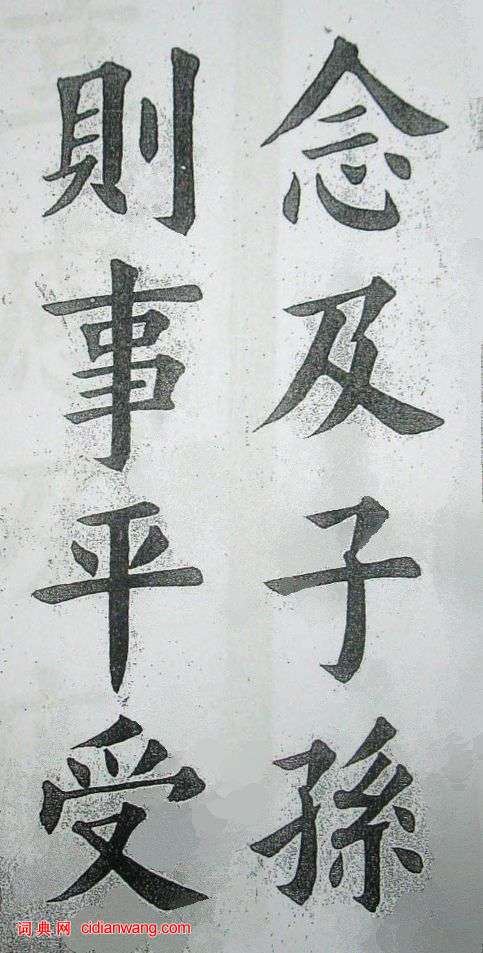 念及子孫
則事平受
词典网 cidianwang.com